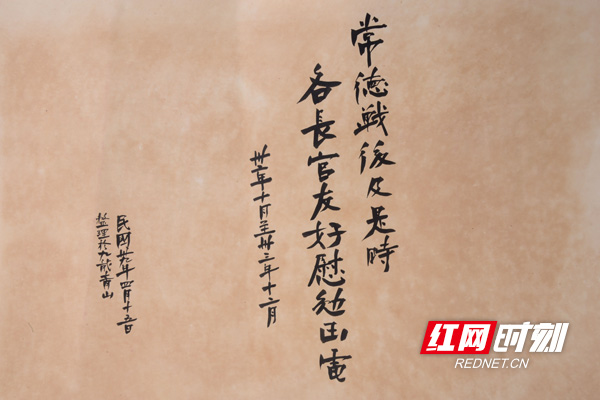 常德戰後及是時
各長官友好慰勉函電
卅二年十月至卅三年十二月
民國卅九年四月十五日
整理於九龍青山
红网时刻
REDNET.CN